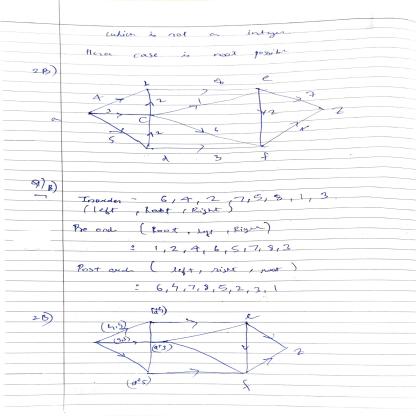 which is not an integer
Hence case is not possible
2B)
b 4 e
4 2 1 7
a 3 c 2 z
5 2 6
d 3 f
Q) B)
Inorder - 6, 4, 2, 7, 5, 8, 1, 3
(left, Root, Right)
Pre ord (Root, left, Right)
: 1, 2, 4, 6, 5, 7, 8, 3
Post order ( left, right, root )
: 6, 4, 7, 8, 5, 2, 3, 1
2B)
e
z
f